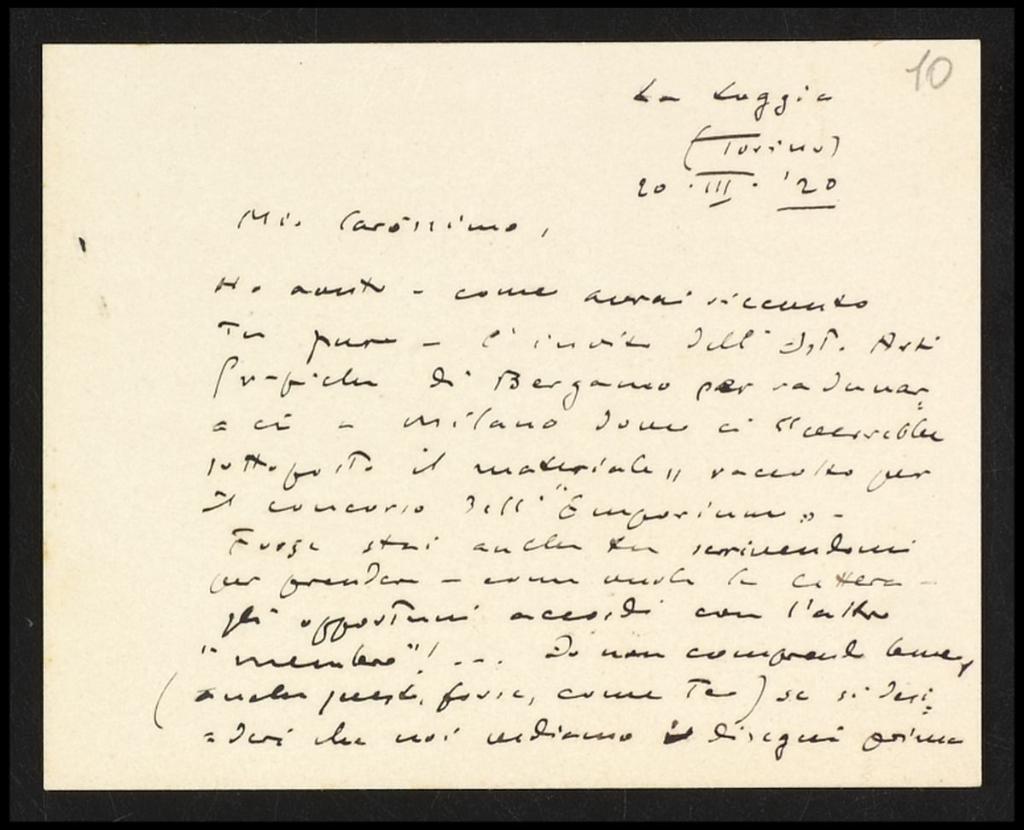 10
La Loggia
(Torino)
20 · III · '20
Mio Carissimo,
Ho avuto - come avrai ricevuto
Tu pure - l'invito dell'Ist. Arti
Grafiche di Bergamo per radunar=
=ci a Milano dove ci "verrebbe
sottoposto il materiale" raccolto per
il concorso dell'"Emporium" -
Forse stai anche tu scrivendomi
per prendere - come vuole la lettera -
gli opportuni accordi con l'altro
"membro"! ... Io non comprendo bene,
(anche questo, forse, come Te) se si desi=
=deri che noi vediamo i disegni prima